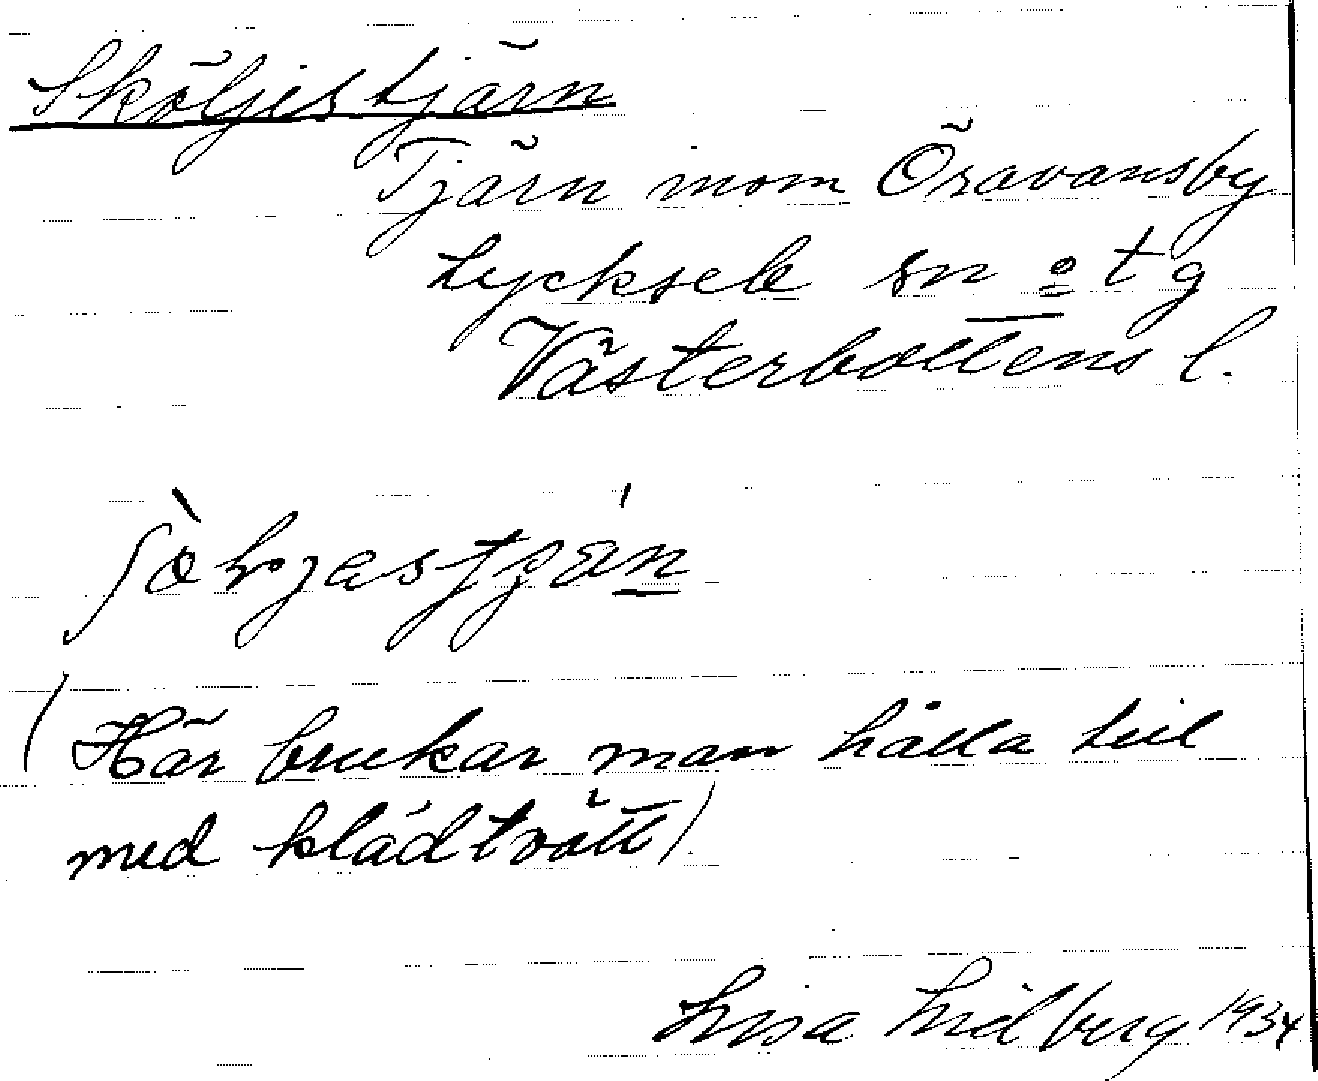 Sköljestjärn
Tjärn inom Öravansby
Lycksele sn o tg
Västerbottens l.
(Här brukar man hålla till
med klädtvätt)
Lisa Lidberg 1934